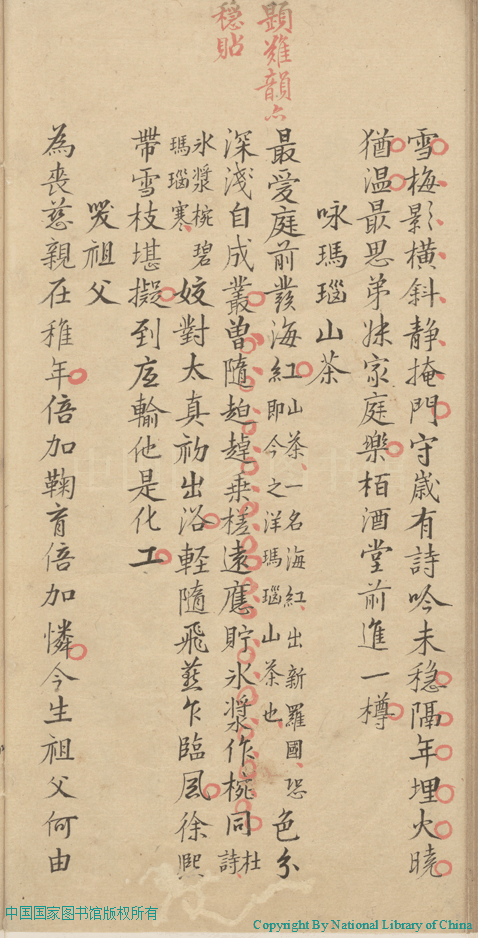 題難韻亦
穩貼
雪梅影橫斜靜掩門守嵗有詩吟未穩隔年埋火曉
猶温最思弟妹家庭樂栢酒堂前進一樽
咏瑪瑙山茶
最愛庭前發海紅山茶、一名海紅、出新羅國、恐即今之洋瑪瑙山茶也、色分
深淺自成叢曾隨趙趠乘槎遠應貯氷漿作椀同杜詩
氷漿椀碧瑪瑙寒、姣對太真初出浴輕隨飛燕乍臨風徐熙
帶雪枝堪擬到底輸他是化工
哭祖父
為喪慈親在稚年倍加鞠育倍加憐今生祖父何由
中国国家图书馆版权所有
Copyright By National Library of China